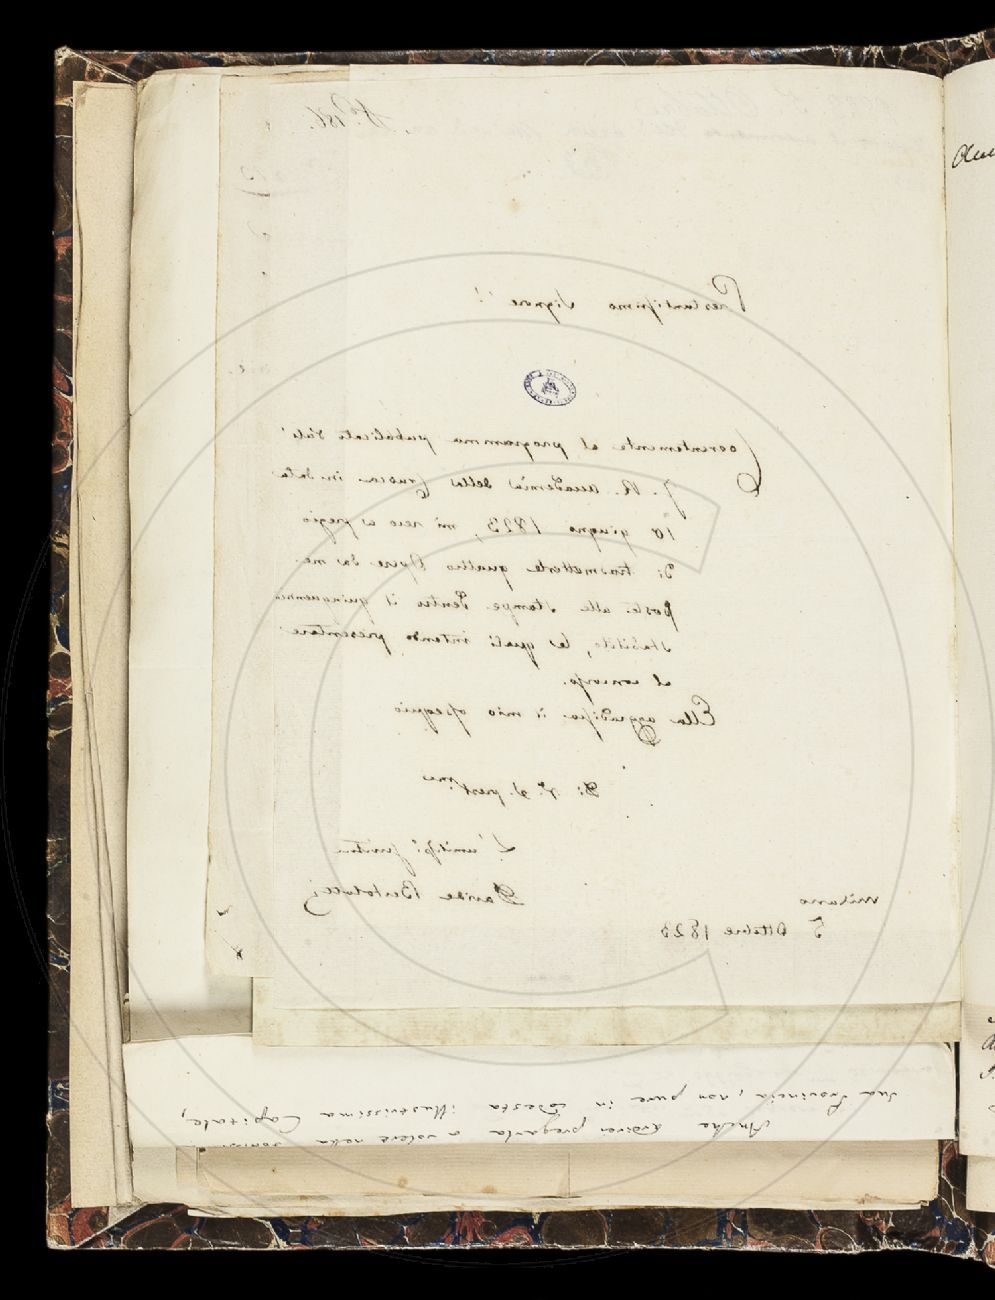 N.° 186.
Prestantissimo Signore!
Coerentemente al programma pubblicato dall'
I. R. Accademia della Crusca in data
10 giugno 1823, mi reco a pregio
di trasmetterle quattro Opere da me
poste alle stampe dentro il quinquennio
stabilito, le quali intendo presentare
al concorso.
Ella aggradisca il mio ossequio
Di V. S. prest.me
L'umiliss.° servitore
Davide Bertolotti
Milano
5 Ottobre 1823
Anche ardirei pregarla a volere nella
sua Provincia, non pure in codesta illustrissima Capitale,